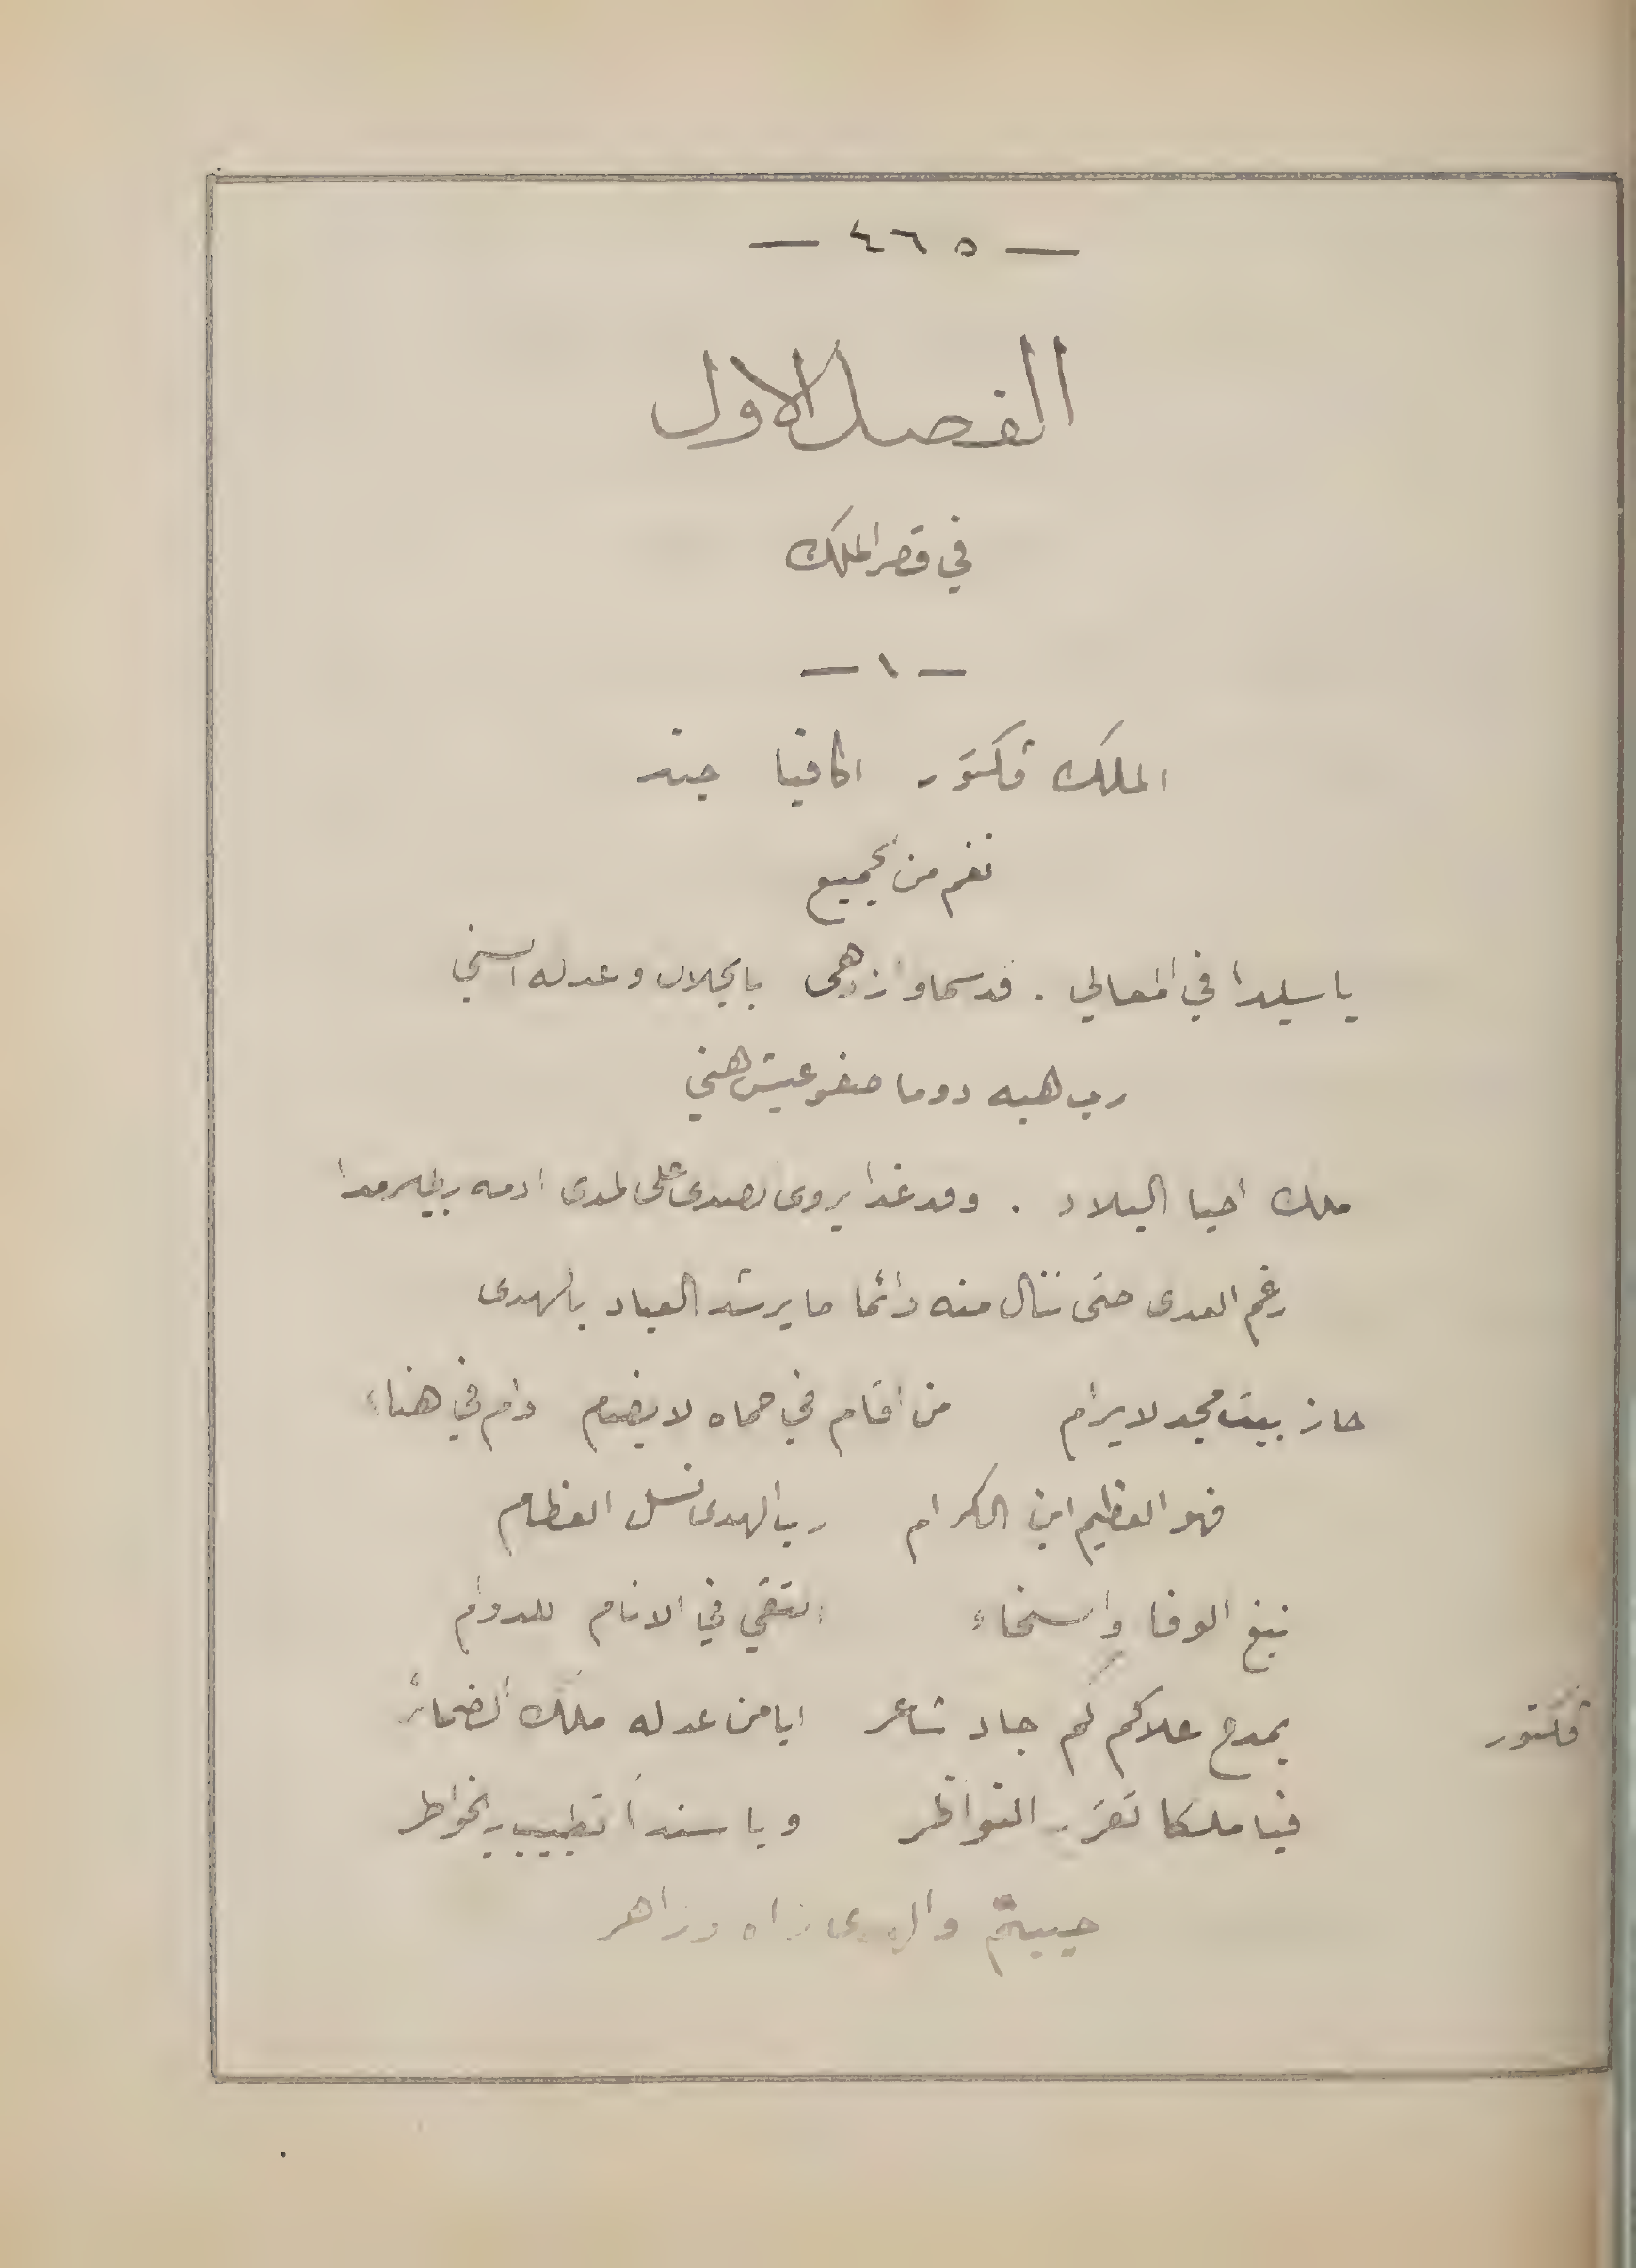 — ٤٦٥ —
الفصل الاول
في قصر الملك
— ١ —
الملك ڤكتور اكافيا جند
نغم من الجميع
يا سيدا في المعالي . قد سما وازدهى بالجلال وعدله السني
رب هبه دوما صفو عيش هني
ملك احيا البلاد . وقد غدا يروى لصدى على المدى ادمه
رغم العدى حتى ننال منه دائما ما يرشد العباد بالهدى
حاز بيت مجد لا يرام من اقام في حماه لا يضام دام في هناء
فهو العظيم ابن الكرام رب الهدى نسل العظام
نبغ الوفا والسخاء التقي في الانام للدوام
ڤكتور بمدح علاكم كم جاد شاعر ايا من عدله ملك الضمائر
فيا ملكا تقر به النواظر ويا سندا تطيب به الخواطر
حييتم وال زاه وزاهر